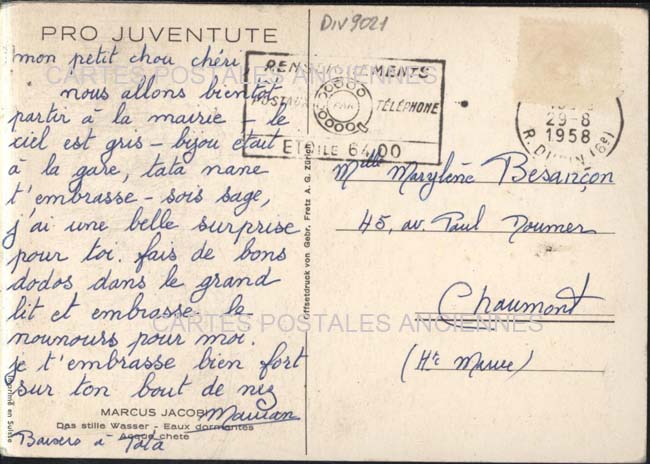 DIV9021
PRO JUVENTUTE
mon petit chou chéri
nous allons bientôt
partir à la mairie - le
ciel est gris - bijou était
à la gare, tata nane
t'embrasse - sois sage,
j'ai une belle surprise
pour toi. fais de bons
dodos dans le grand
lit et embrasse le
nounours pour moi.
je t'embrasse bien fort
sur ton bout de nez
Maman
Baisers à Tata
MARCUS JACOBI
Das stille Wasser - Eaux dormantes
Acque chete
Imprimé en Suisse
Offsetdruck von Gebr. Fretz A. G. Zürich
POSTAUX
TÉLÉPHONE
PAR
ETOILE 64.00
29-8
1958
Melle Marylène Besançon
45, av. Paul Doumer
Chaumont
(Hte Marne)
CARTES POSTALES ANCIENNES
CARTES POSTALES ANCIENNES